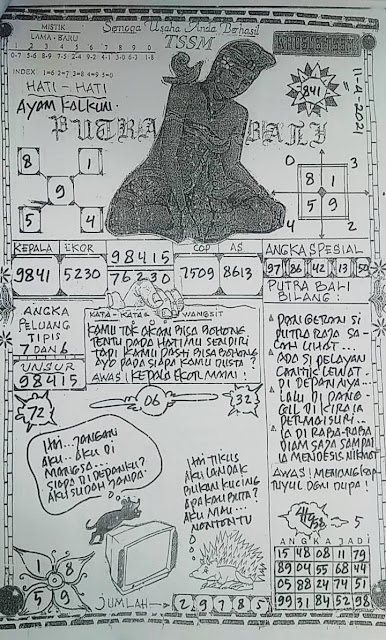 Semoga Usaha Anda Berhasil
TSSM
MISTIK
LAMA - BARU
1 2 3 4 5 6 7 8 9 0
0-7 5-6 8-9 7-5 2-4 6-2 9-8 4-1 3-0 6-3 1-8
INDEX 1=6 2=7 3=8 4=9 5=0
HATI - HATI
AYAM KALKUN.
PUTRA BALI
841
11-4-2021
8 1
9
5 4
0 3
8 1
5 9
4 2
KEPALA EKOR
9841 5230
98415
76230
COP AS
7509 8613
ANGKA SPESIAL
97 86 42 13 50
ANGKA
PELUANG
TIPIS
7 DAN 6
UNSUR
98415
KATA-KATA WANGSIT
KAMU TDK AKAN BISA BOHONG
TENTU PADA HATIMU SENDIRI
TAPI KAMU PASTI BISA BOHONG
AYO PADA SIAPA KAMU DUSTA?
AWAS! KEPALA EKOR MAIN!
PUTRA BALI
BILANG:
PANGERAN SI
PUTRA RAJA SA
CAN LIHAT...
ADA SI PELAYAN
CANTIK LEWAT
DI DEPANNYA...
LALU DI PANG
GIL DI KIRA IA
PERMAISURI..
IA DI RABA-RABA
DIAM SAJA SAMPAI
IA MENDESIS NIKMAT
AWAS! MENYANGKAP
TUYUL DGN DUPA!
72
06
32
HAI... JANGAN
AKU.. AKU DI
MANGSA...
SIAPA DI DEPANKU?
AKU SUDAH JANDA.
HAI TIKUS
AKU LANDAK
BUKAN KUCING
APAKAH BUTA?
AKU MAU...
NONTON TV
5
ANGKA JADI
15 48 08 11 79
89 04 55 68 44
05 88 24 74 51
99 31 84 52 98
1 8
5 9
JUMLAH → 2 9 7 8 5